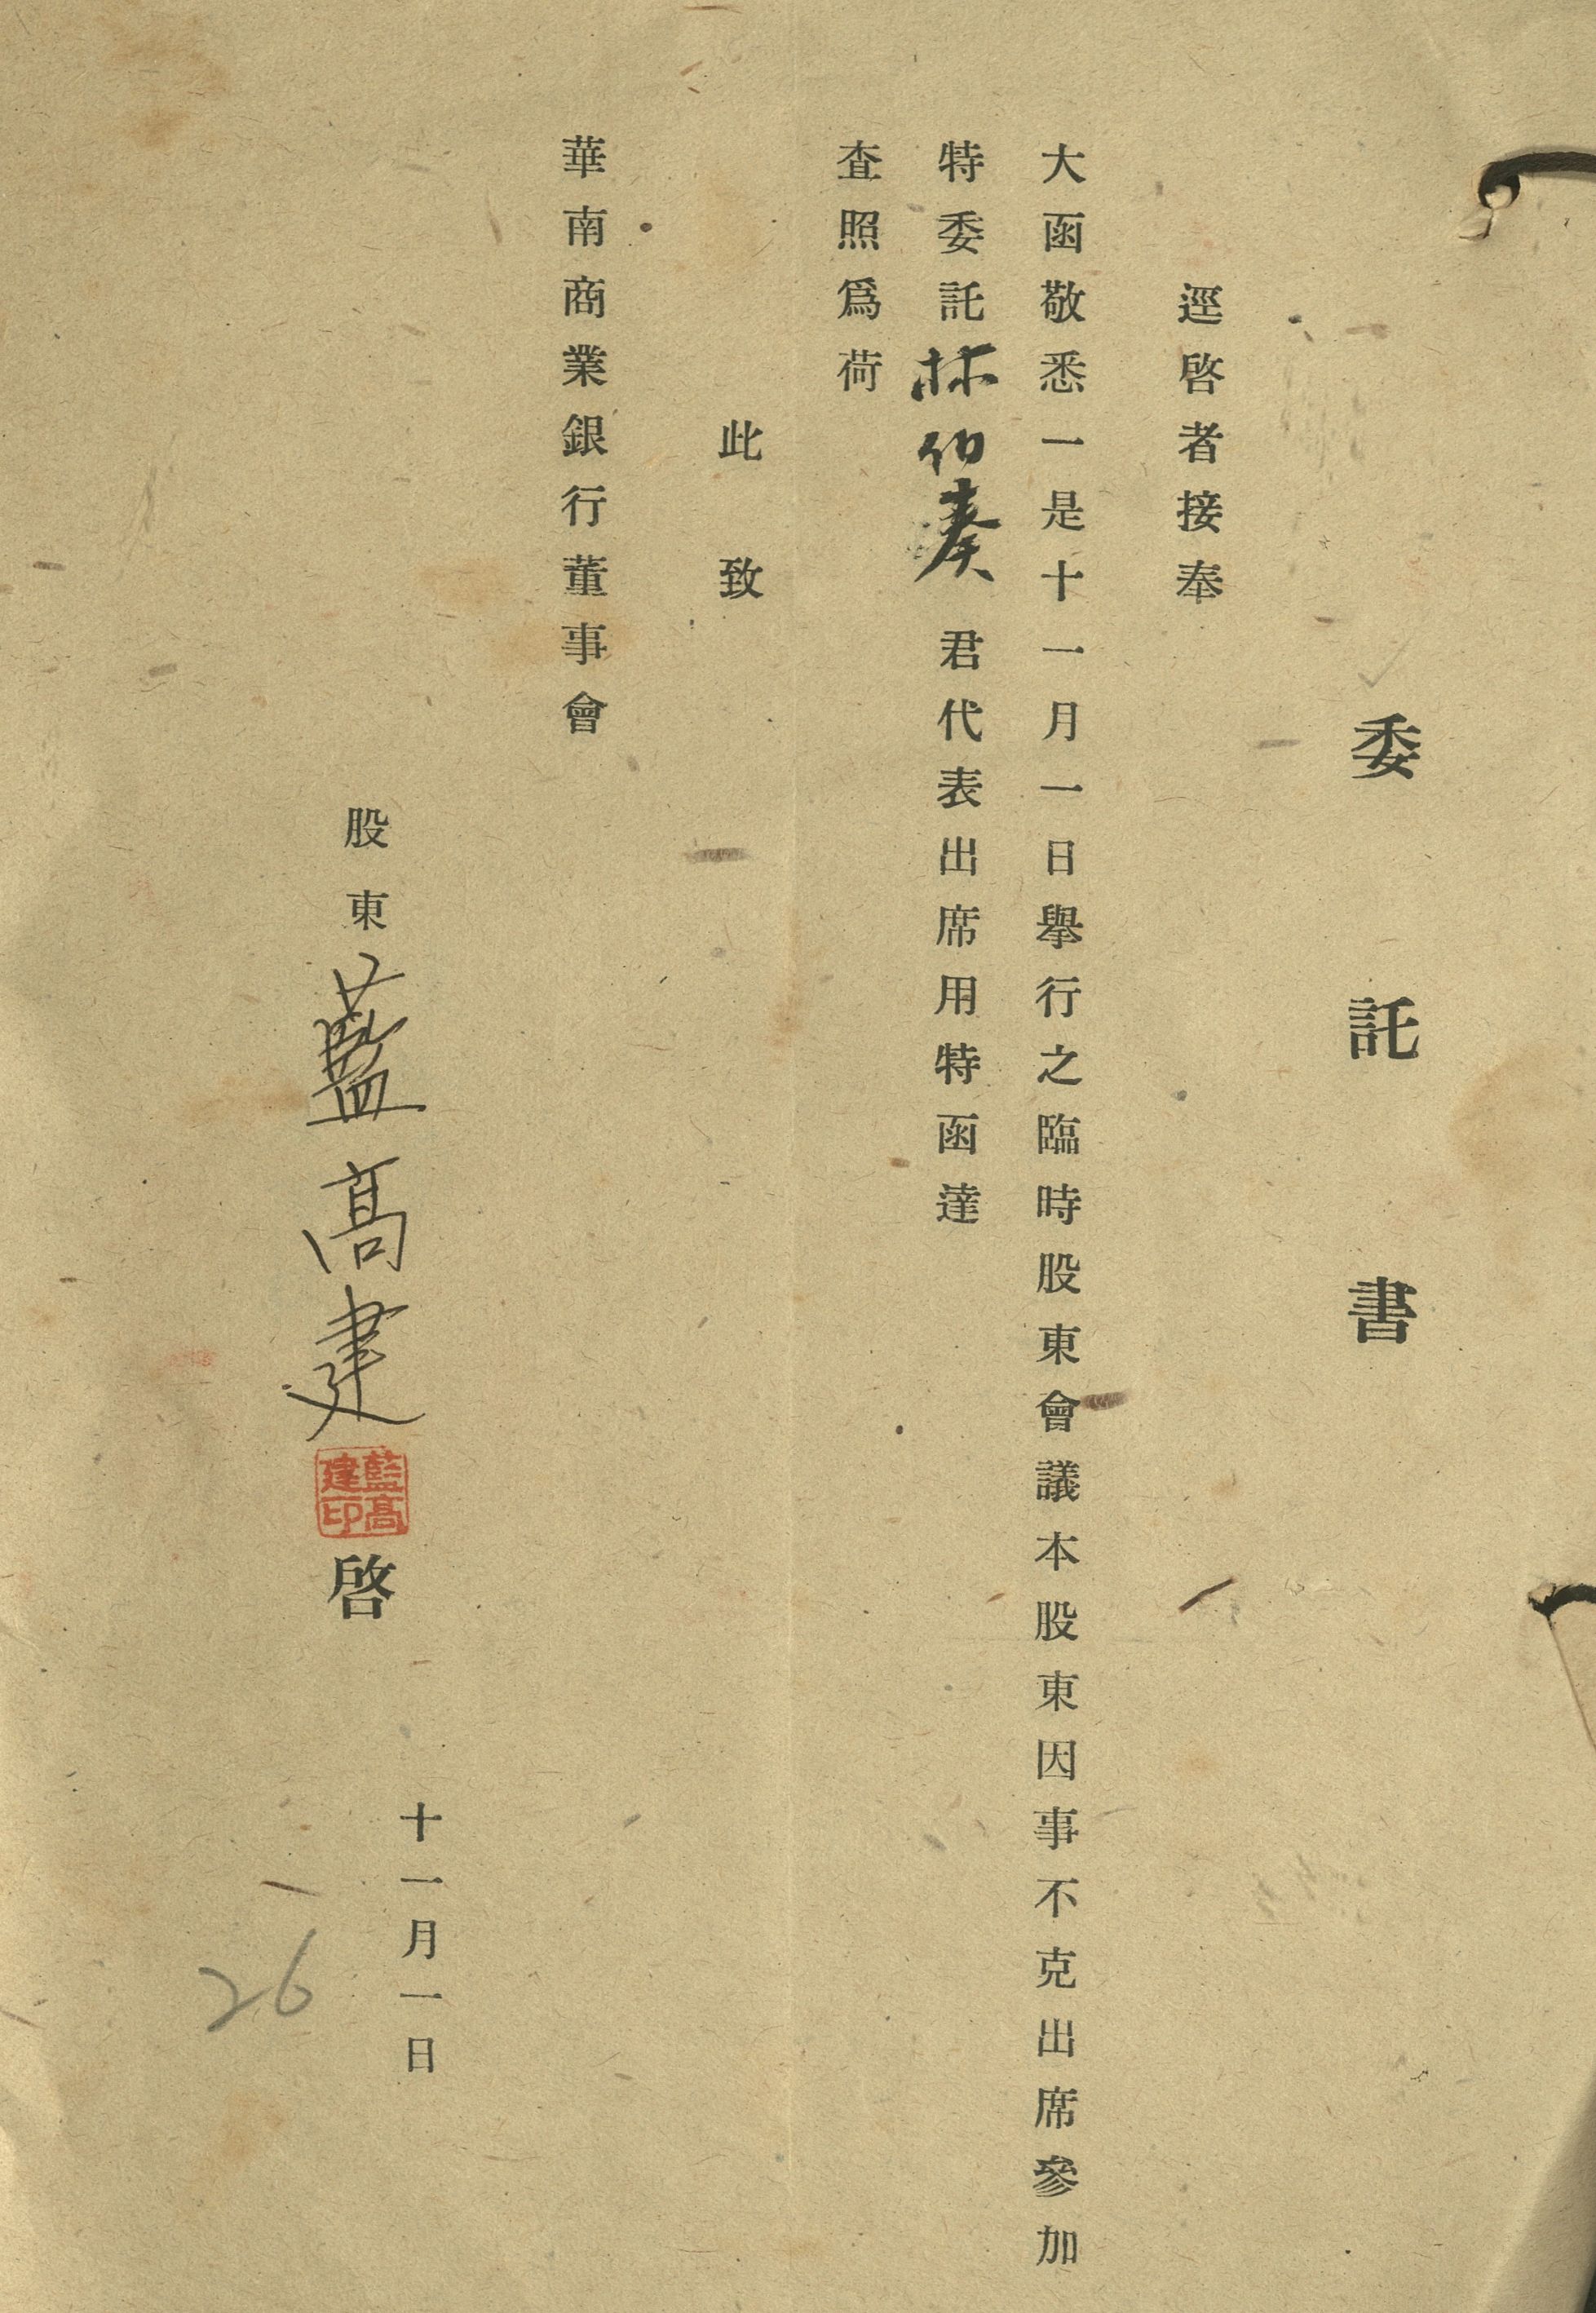 委託書
逕啓者接奉
大函敬悉一是十一月一日擧行之臨時股東會議本股東因事不克出席參加
特委託林伯奏君代表出席用特函達
査照爲荷
此致
華南商業銀行董事會
股東藍高建啓
藍高建印
十一月一日
26